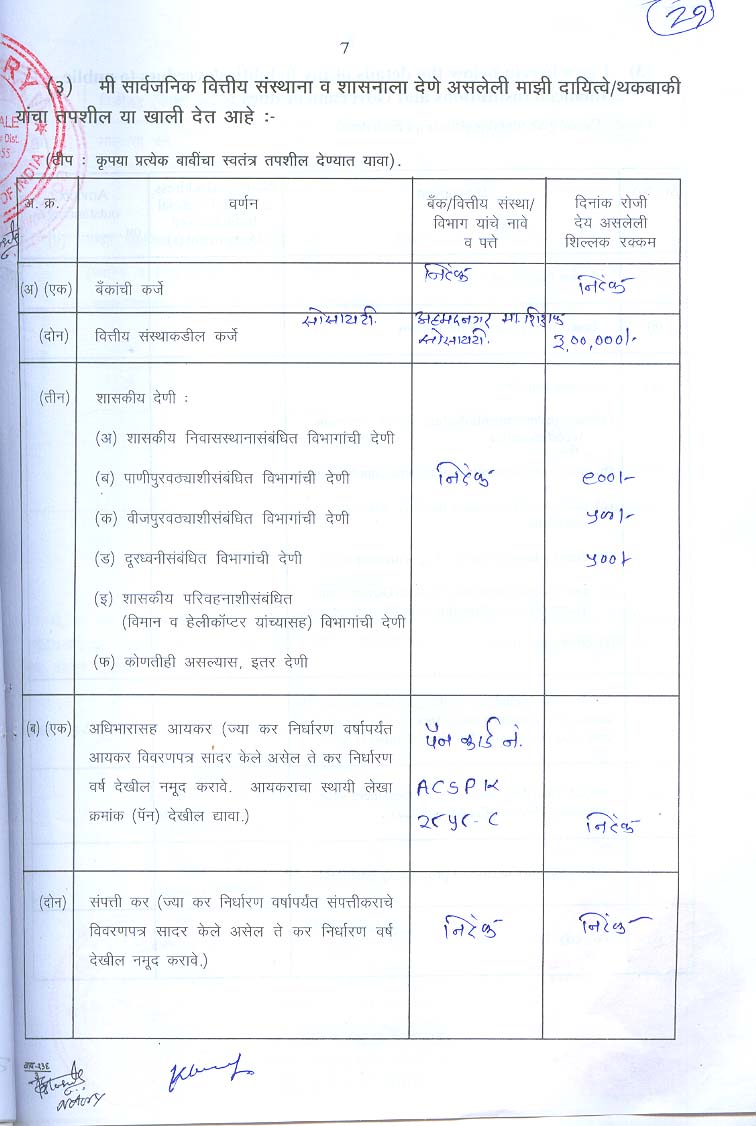 29
7
(३) मी सार्वजनिक वित्तीय संस्थाना व शासनाला देणे असलेली माझी दायित्वे/थकबाकी
यांचा तपशील या खाली देत आहे :-
(टीप : कृपया प्रत्येक बाबींचा स्वतंत्र तपशील देण्यात यावा).
अ. क्र. वर्णन बँक/वित्तीय संस्था/ दिनांक रोजी
विभाग यांचे नावे देय असलेली
व पत्ते शिल्लक रक्कम
(अ) (एक) बँकांची कर्जे निरंक निरंक
सोसायटी. अहमदनगर मा. शिक्षक
(दोन) वित्तीय संस्थाकडील कर्जे सोसायटी. ३,००,०००/-
(तीन) शासकीय देणी :
(अ) शासकीय निवासस्थानासंबंधित विभागांची देणी
(ब) पाणीपुरवठ्याशीसंबंधित विभागांची देणी निरंक ९००/-
(क) वीजपुरवठ्याशीसंबंधित विभागांची देणी
(ड) दूरध्वनीसंबंधित विभागांची देणी ५००/-
(इ) शासकीय परिवहनाशीसंबंधित
(विमान व हेलीकॉप्टर यांच्यासह) विभागांची देणी
(फ) कोणतीही असल्यास, इतर देणी
(ब) (एक) अधिभारासह आयकर (ज्या कर निर्धारण वर्षापर्यंत पॅन कार्ड नं.
आयकर विवरणपत्र सादर केले असेल ते कर निर्धारण
वर्ष देखील नमूद करावे. आयकराचा स्थायी लेखा ACSPK
क्रमांक (पॅन) देखील द्यावा.) २८५८-C निरंक
(दोन) संपत्ती कर (ज्या कर निर्धारण वर्षापर्यंत संपत्तीकराचे
विवरणपत्र सादर केले असेल ते कर निर्धारण वर्ष निरंक निरंक
देखील नमूद करावे.)
NOTARY